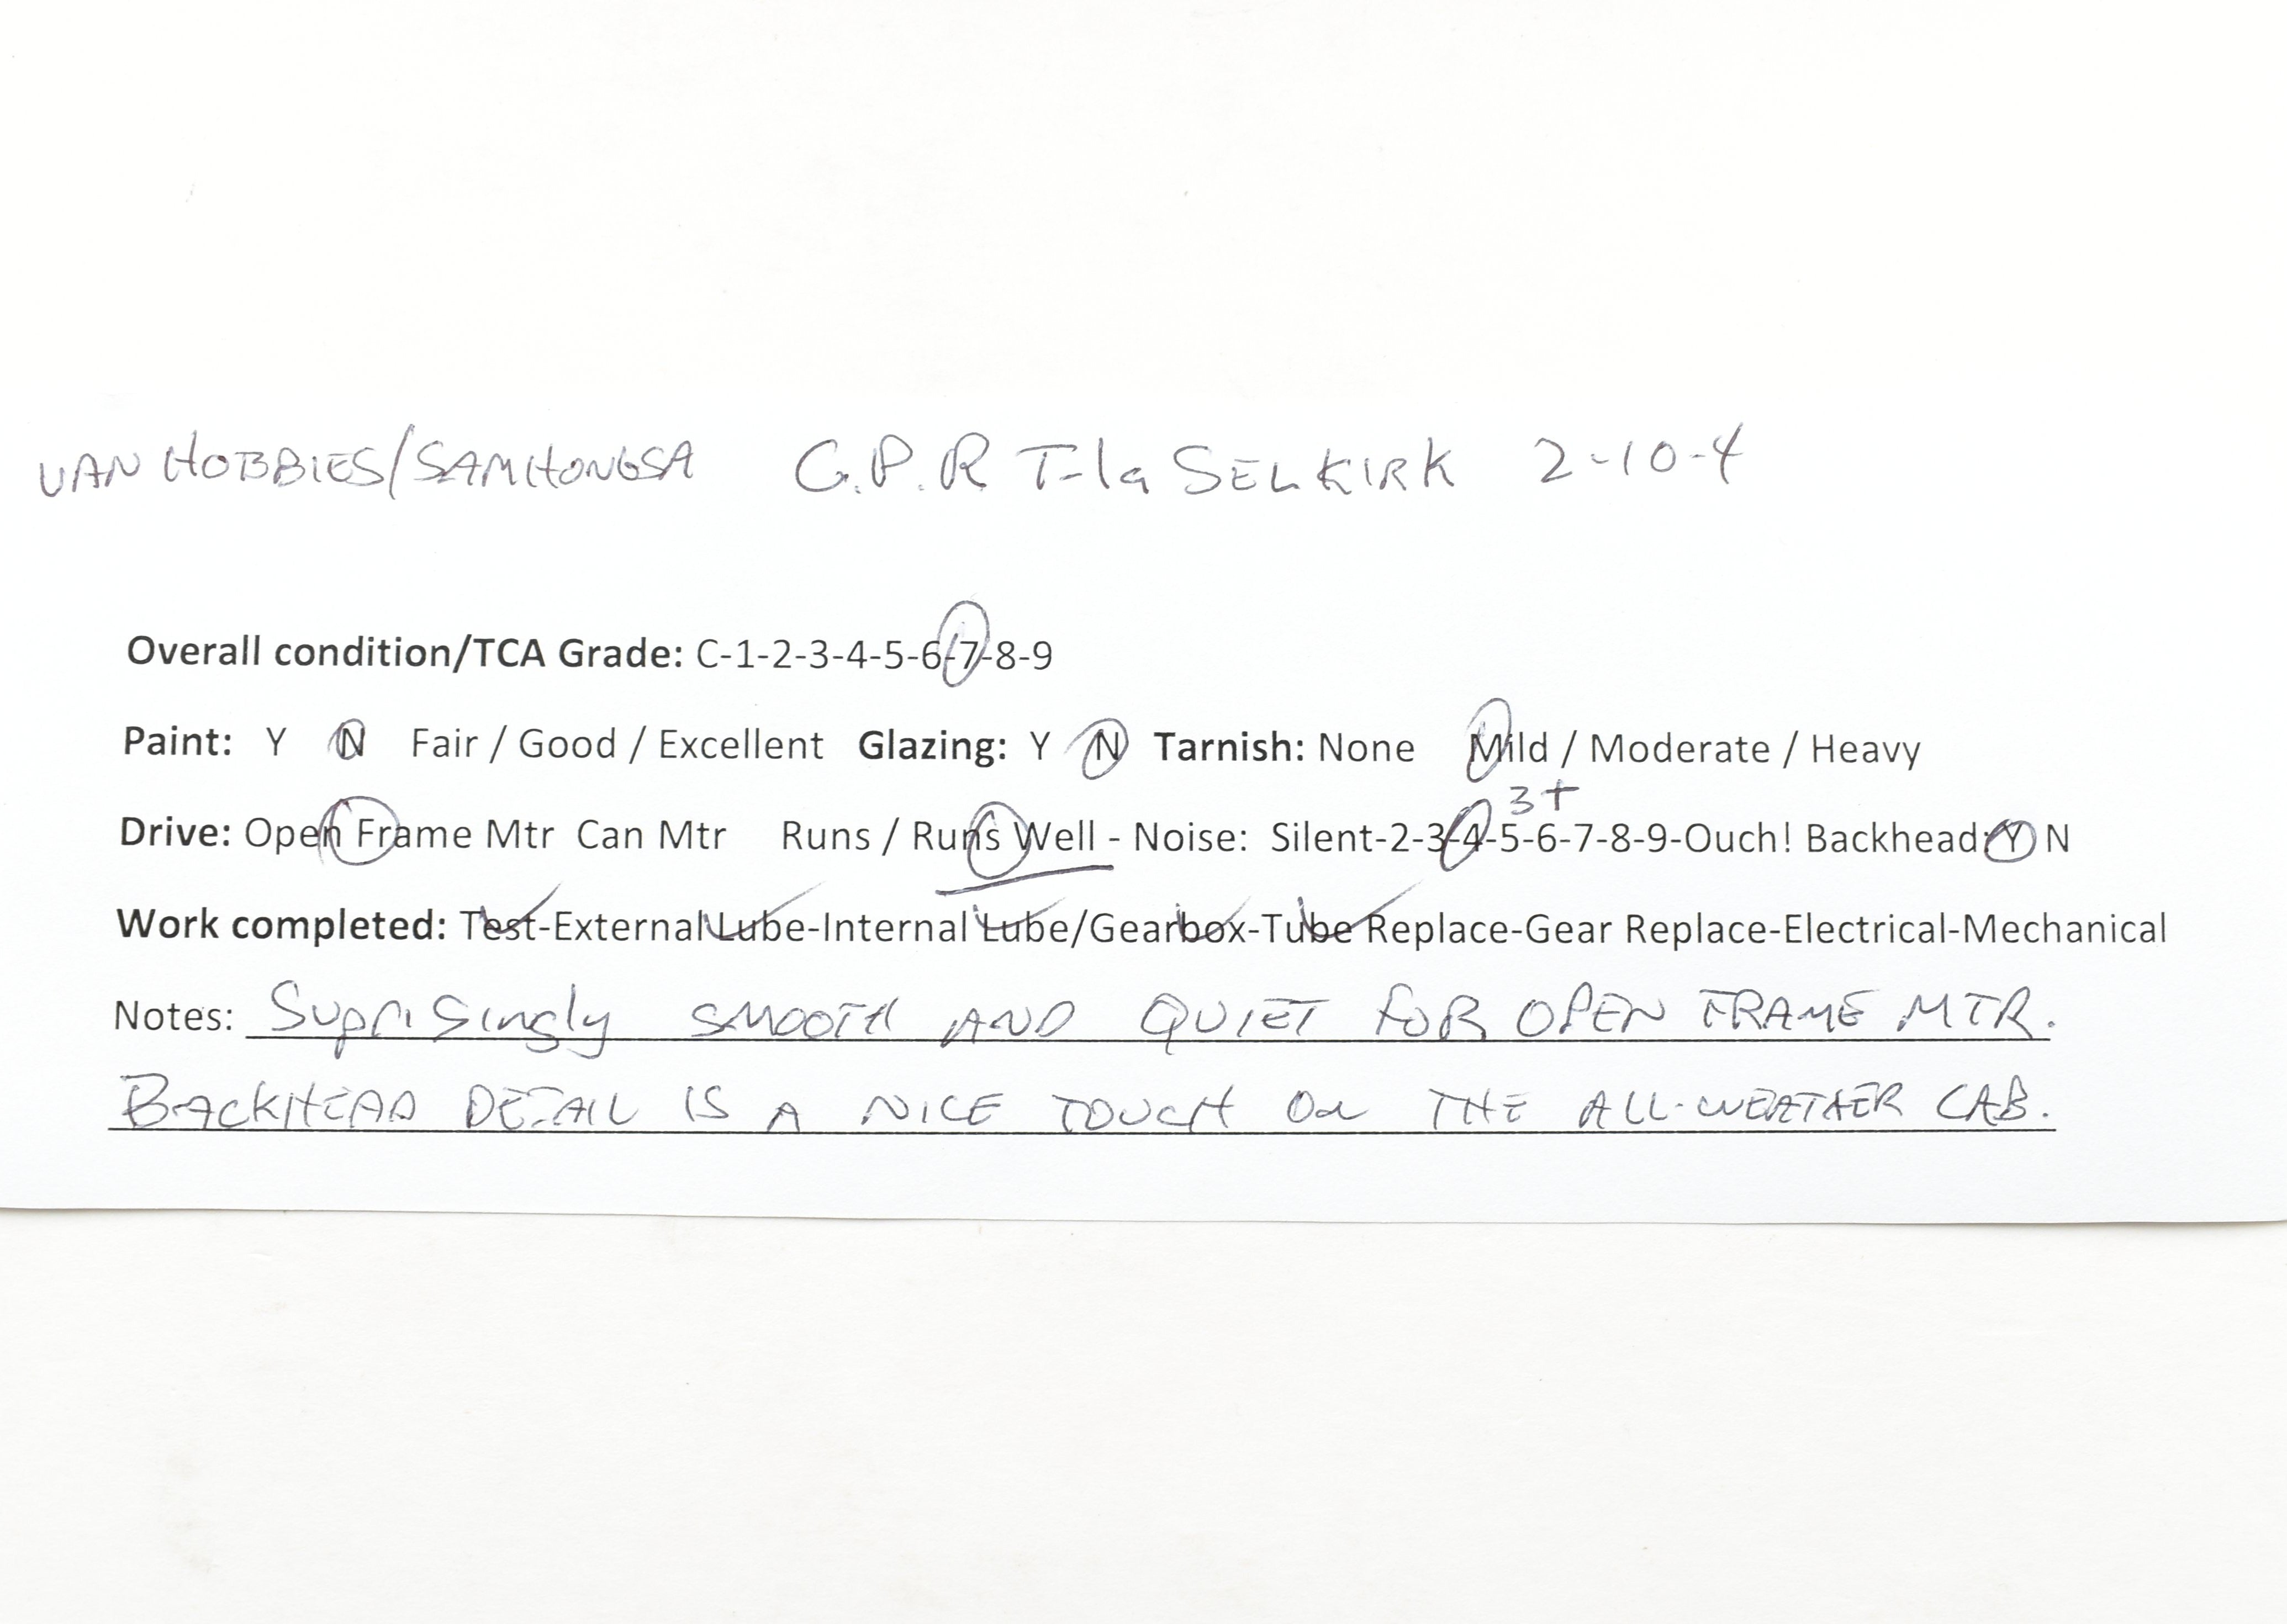 VAN HOBBIES/SAMHONGSA C.P.R T-1a SELKIRK 2-10-4
Overall condition/TCA Grade: C-1-2-3-4-5-6-7-8-9
Paint: Y N Fair / Good / Excellent Glazing: Y N Tarnish: None Mild / Moderate / Heavy
3+
Drive: Open Frame Mtr Can Mtr Runs / Runs Well - Noise: Silent-2-3-4-5-6-7-8-9-Ouch! Backhead: Y N
Work completed: Test-External Lube-Internal Lube/Gearbox-Tube Replace-Gear Replace-Electrical-Mechanical
Notes: Suprisingly SMOOTH AND QUIET FOR OPEN FRAME MTR.
BACKHEAD DETAIL IS A NICE TOUCH ON THE ALL-WEATHER CAB.